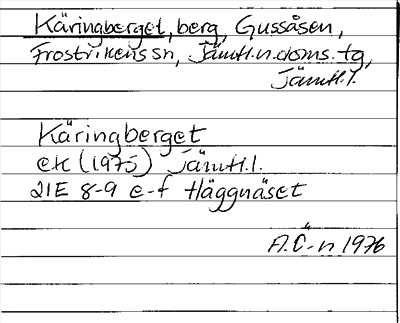 Käringberget, berg, Gussåsen,
Frostvikens sn, Jämtl.n.doms.tg,
Jämtl.l.
Käringberget
ek (1975) Jämtl.l.
21E 8-9 e-f Häggnäset
A.Ö-n 1976